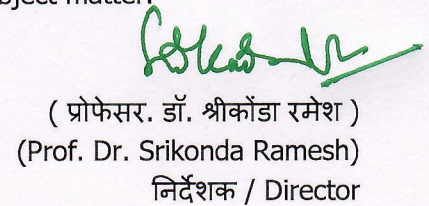 bject matter.
( प्रोफेसर. डॉ. श्रीकोंडा रमेश )
(Prof. Dr. Srikonda Ramesh)
निर्देशक / Director